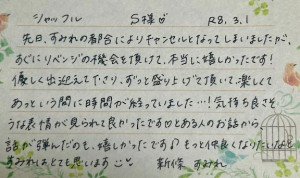 シャッフル S様♡ R8.3.1
先日、すみれの都合によりキャンセルとなってしまいましたが、
すぐにリベンジの機会を頂けて、本当に嬉しかったです!
優しく出迎えて下さり、ずっと盛り上げて頂いて、楽しくて
あっという間に時間が経っていました…!気持ち良さそ
うな表情が見られて良かったです とある人のお話から
話が弾んだのも、嬉しかったです♪もっと仲良くなりたいなと
すみれはとても思います
新條 すみれ